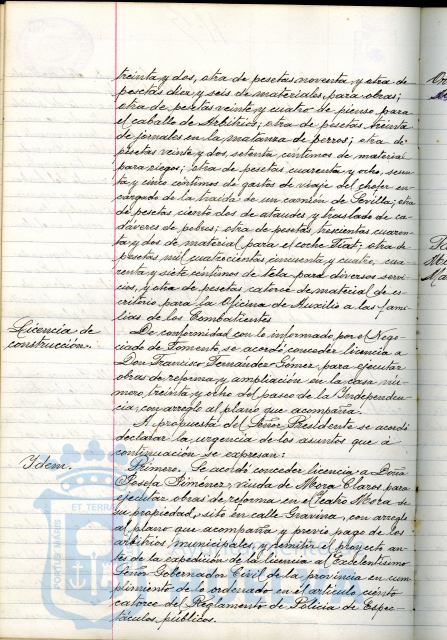 treinta y dos, otra de pesetas noventa, y otra de
pesetas diez y seis de materiales para obras;
otra de pesetas veinte y cuatro de pienso para
el caballo de Arbitrios; otra de pesetas treinta
de jornales en la matanza de perros; otra de
pesetas veinte y dos, setenta céntimos de material
para riegos; otra de pesetas cuarenta y ocho, sesen-
ta y cinco céntimos de gastos de viaje del chofer en-
cargado de la traida de un camión de Sevilla; otra
de pesetas ciento dos de ataudes y traslado de ca-
dáveres de pobres; otra de pesetas trescientas cuaren-
ta y dos de material para el coche Fiat; otra de
pesetas mil cuatrocientas cincuenta y cuatro, cua-
renta y siete céntimos de tela para diversos servi-
cios, y otra de pesetas catorce de material de es-
critorio para la Oficina de Auxilio a las fami-
lias de los Combatientes.
Licencia de
construcción.
De conformidad con lo informado por el Nego-
ciado de Fomento, se acordó conceder licencia a
Don Francisco Fernández Gómez para ejecutar
obras de reforma y ampliación en la casa nú-
mero treinta y ocho del paseo de la Independen-
cia, con arreglo al plano que acompaña.
A propuesta del Señor Presidente se acordó
declarar la urgencia de los asuntos que a
continuación se expresan:
Ydem.
Primero. Se acordó conceder licencia a Doña
Josefa Jiménez, viuda de Mora Claros para
ejecutar obras de reforma en el Teatro Mora de
su propiedad, sito en calle Gravina, con arreglo
al plano que acompaña y previo pago de los
arbitrios municipales y remitir el proyecto an-
tes de la expedición de la licencia al Excelentísimo
Señor Gobernador Civil de la provincia en cum-
plimiento de lo ordenado en el artículo ciento
catorce del Reglamento de Policía de Espec-
táculos públicos.
PORTUS MARIS
ET TERRAE